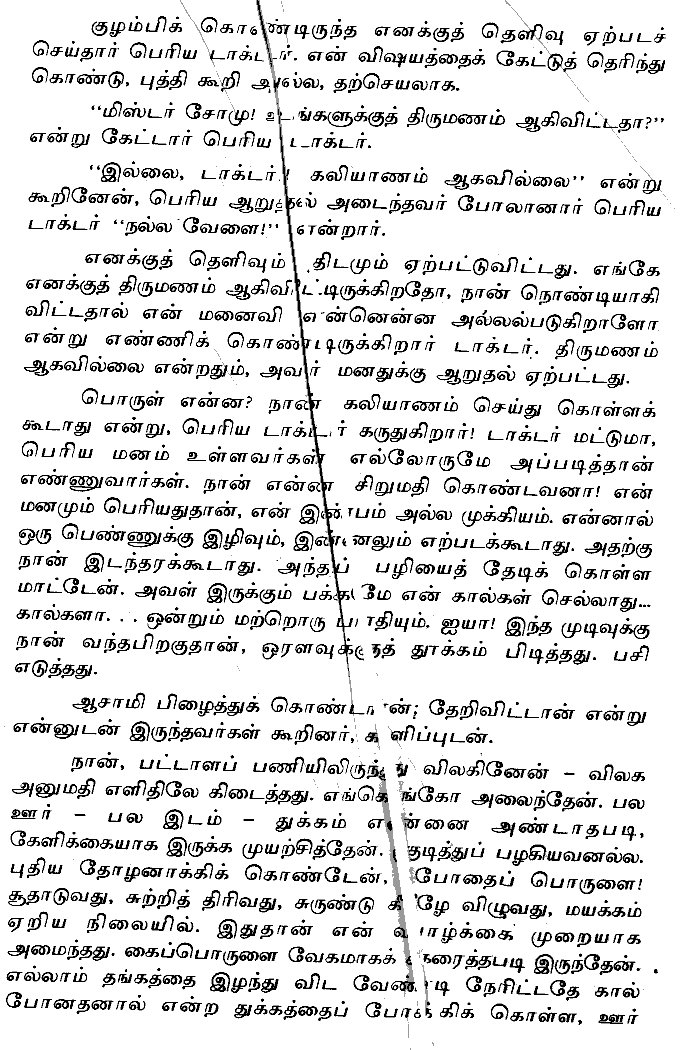 குழம்பிக் கொண்டிருந்த எனக்குத் தெளிவு ஏற்படச்
செய்தார் பெரிய டாக்டர். என் விஷயத்தைக் கேட்டுத் தெரிந்து
கொண்டு, புத்தி கூறி அல்ல, தற்செயலாக.
“மிஸ்டர் சோமு! உங்களுக்குத் திருமணம் ஆகிவிட்டதா?”
என்று கேட்டார் பெரிய டாக்டர்.
“இல்லை, டாக்டர்! கலியாணம் ஆகவில்லை” என்று
கூறினேன், பெரிய ஆறுதல் அடைந்தவர் போலானார் பெரிய
டாக்டர் “நல்ல வேளை!” என்றார்.
எனக்குத் தெளிவும் திடமும் ஏற்பட்டுவிட்டது. எங்கே
எனக்குத் திருமணம் ஆகிவிட்டிருக்கிறதோ, நான் நொண்டியாகி
விட்டதால் என் மனைவி என்னென்ன அல்லல்படுகிறாளோ
என்று எண்ணிக் கொண்டிருக்கிறார் டாக்டர். திருமணம்
ஆகவில்லை என்றதும், அவர் மனதுக்கு ஆறுதல் ஏற்பட்டது.
பொருள் என்ன? நான் கலியாணம் செய்து கொள்ளக்
கூடாது என்று, பெரிய டாக்டர் கருதுகிறார்! டாக்டர் மட்டுமா,
பெரிய மனம் உள்ளவர்கள் எல்லோருமே அப்படித்தான்
எண்ணுவார்கள். நான் என்ன சிறுமதி கொண்டவனா! என்
மனமும் பெரியதுதான், என் இன்பம் அல்ல முக்கியம். என்னால்
ஒரு பெண்ணுக்கு இழிவும், இன்னலும் எற்படக்கூடாது. அதற்கு
நான் இடந்தரக்கூடாது. அந்தப் பழியைத் தேடிக் கொள்ள
மாட்டேன். அவள் இருக்கும் பக்கமே என் கால்கள் செல்லாது...
கால்களா. . . ஒன்றும் மற்றொரு பாதியும். ஐயா! இந்த முடிவுக்கு
நான் வந்தபிறகுதான், ஒரளவுக்குத் தூக்கம் பிடித்தது. பசி
எடுத்தது.
ஆசாமி பிழைத்துக் கொண்டான்; தேறிவிட்டான் என்று
என்னுடன் இருந்தவர்கள் கூறினர், களிப்புடன்.
நான், பட்டாளப் பணியிலிருந்து விலகினேன் – விலக
அனுமதி எளிதிலே கிடைத்தது. எங்கெங்கோ அலைந்தேன். பல
ஊர் – பல இடம் – துக்கம் என்னை அண்டாதபடி,
கேளிக்கையாக இருக்க முயற்சித்தேன். குடித்துப் பழகியவனல்ல.
புதிய தோழனாக்கிக் கொண்டேன், போதைப் பொருளை!
சூதாடுவது, சுற்றித் திரிவது, சுருண்டு கீழே விழுவது, மயக்கம்
ஏறிய நிலையில். இதுதான் என் வாழ்க்கை முறையாக
அமைந்தது. கைப்பொருளை வேகமாகக் கரைத்தபடி இருந்தேன்.
எல்லாம் தங்கத்தை இழந்து விட வேண்டி நேரிட்டதே கால்
போனதனால் என்ற துக்கத்தைப் போக்கிக் கொள்ள, ஊர்